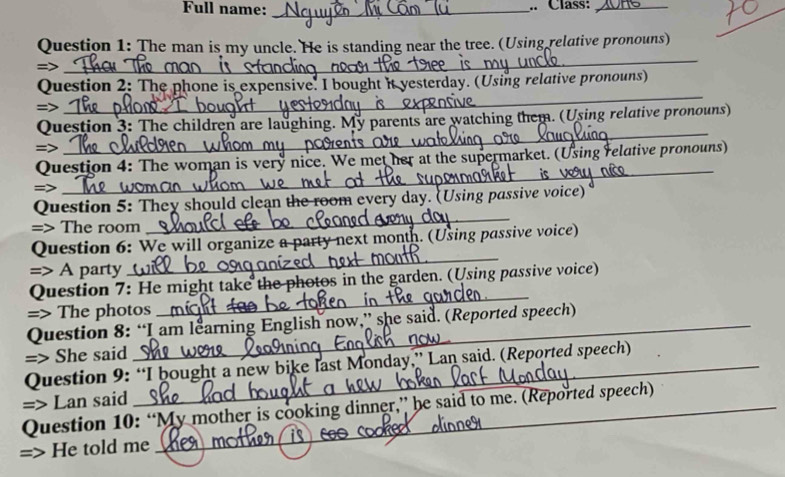 Full name: Nguyễn Thị Cẩm Tú .. Class: 10A6
70
Question 1: The man is my uncle. He is standing near the tree. (Using relative pronouns)
=> The man is standing near the tree is my uncle.
Question 2: The phone is expensive. I bought it yesterday. (Using relative pronouns)
which
=> The phone I bought yesterday is expensive
Question 3: The children are laughing. My parents are watching them. (Using relative pronouns)
=> The children whom my parents are watching are laughing
Question 4: The woman is very nice. We met her at the supermarket. (Using relative pronouns)
=> The woman whom we met at the supermarket is very nice
Question 5: They should clean the room every day. (Using passive voice)
=> The room should be cleaned every day
Question 6: We will organize a party next month. (Using passive voice)
=> A party will be organized next month.
Question 7: He might take the photos in the garden. (Using passive voice)
=> The photos might be taken in the garden.
Question 8: “I am learning English now,” she said. (Reported speech)
=> She said she were learning English now
Question 9: “I bought a new bike last Monday,” Lan said. (Reported speech)
=> Lan said she had bought a new last Monday.
Question 10: “My mother is cooking dinner,” he said to me. (Reported speech)
=> He told me her mother is cooked dinner